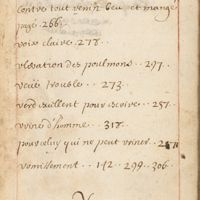 contre tout venin beu et mangé
page. 266.
voix claire. 278.
vlceration des poulmons.. 297.
veüe trouble.. 273.
verd excellent pour escrire.. 257.
vrine d'homme.. 318.
pour celuy qui ne peut vriner..
vomissement.. 142.. 299.. 306.